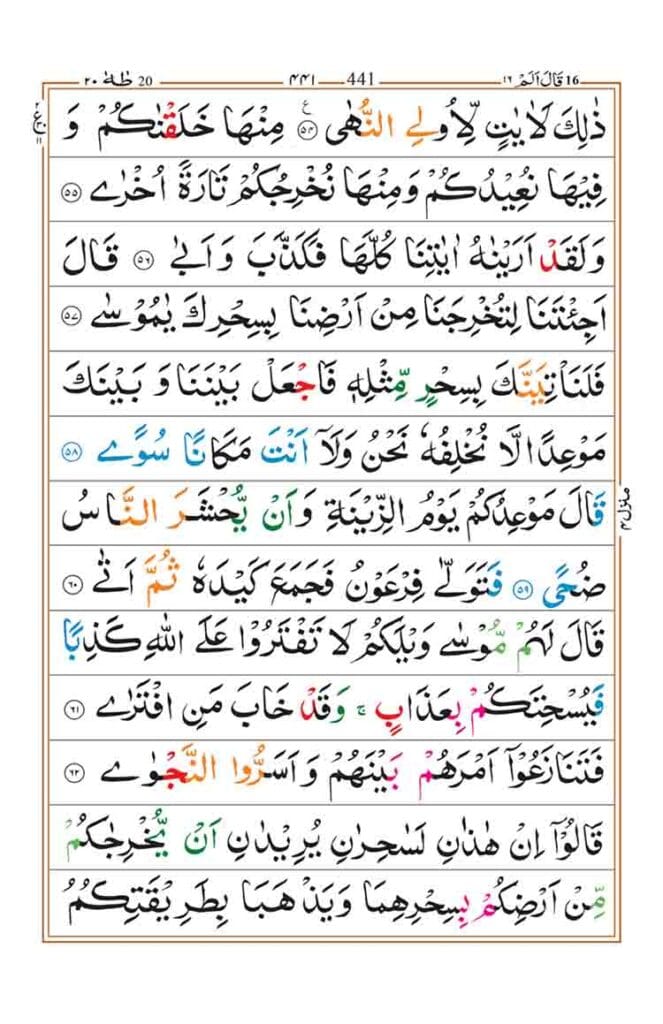 20 طٰهٰ ٢٠ ٤٤١ 441 16 قَالَ اَلَمْ ١٦
ذٰلِكَ لَاٰيٰتٍ لِّاُولِى النُّهٰى ۝٥٤ ع مِنْهَا خَلَقْنٰكُمْ وَ
فِيْهَا نُعِيْدُكُمْ وَمِنْهَا نُخْرِجُكُمْ تَارَةً اُخْرٰى ۝٥٥
وَلَقَدْ اَرَيْنٰهُ اٰيٰتِنَا كُلَّهَا فَكَذَّبَ وَاَبٰى ۝٥٦ قَالَ
اَجِئْتَنَا لِتُخْرِجَنَا مِنْ اَرْضِنَا بِسِحْرِكَ يٰمُوْسٰى ۝٥٧
فَلَنَاْتِيَنَّكَ بِسِحْرٍ مِّثْلِهٖ فَاجْعَلْ بَيْنَنَا وَبَيْنَكَ
مَوْعِدًا لَّا نُخْلِفُهٗ نَحْنُ وَلَاۤ اَنْتَ مَكَانًا سُوًى ۝٥٨
قَالَ مَوْعِدُكُمْ يَوْمُ الزِّيْنَةِ وَاَنْ يُّحْشَرَ النَّاسُ
ضُحًى ۝٥٩ فَتَوَلّٰى فِرْعَوْنُ فَجَمَعَ كَيْدَهٗ ثُمَّ اَتٰى ۝٦٠
قَالَ لَهُمْ مُّوْسٰى وَيْلَكُمْ لَا تَفْتَرُوْا عَلَى اللّٰهِ كَذِبًا
فَيُسْحِتَكُمْ بِعَذَابٍ ۚ وَقَدْ خَابَ مَنِ افْتَرٰى ۝٦١
فَتَنَازَعُوْۤا اَمْرَهُمْ بَيْنَهُمْ وَاَسَرُّوا النَّجْوٰى ۝٦٢
قَالُوْۤا اِنْ هٰذٰنِ لَسٰحِرٰنِ يُرِيْدٰنِ اَنْ يُّخْرِجٰكُمْ
مِّنْ اَرْضِكُمْ بِسِحْرِهِمَا وَيَذْهَبَا بِطَرِيْقَتِكُمُ
منزل ٤